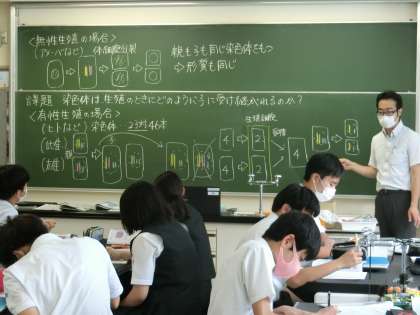 <無性生殖の場合>
(アメーバなど) 体細胞分裂
親も子も同じ染色体をもつ
→形質も同じ
課題 染色体は生殖のときにどのように受け継がれるのか?
<有性生殖の場合>
(ヒトなど) 染色体…23対46本
生殖細胞
4
4
2
2
4